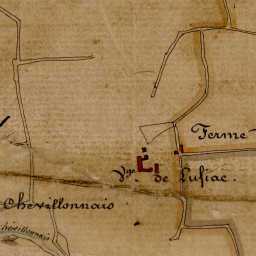 Ferme
Vge. de Lusiac.
Chevillonnais
Chevillonnais